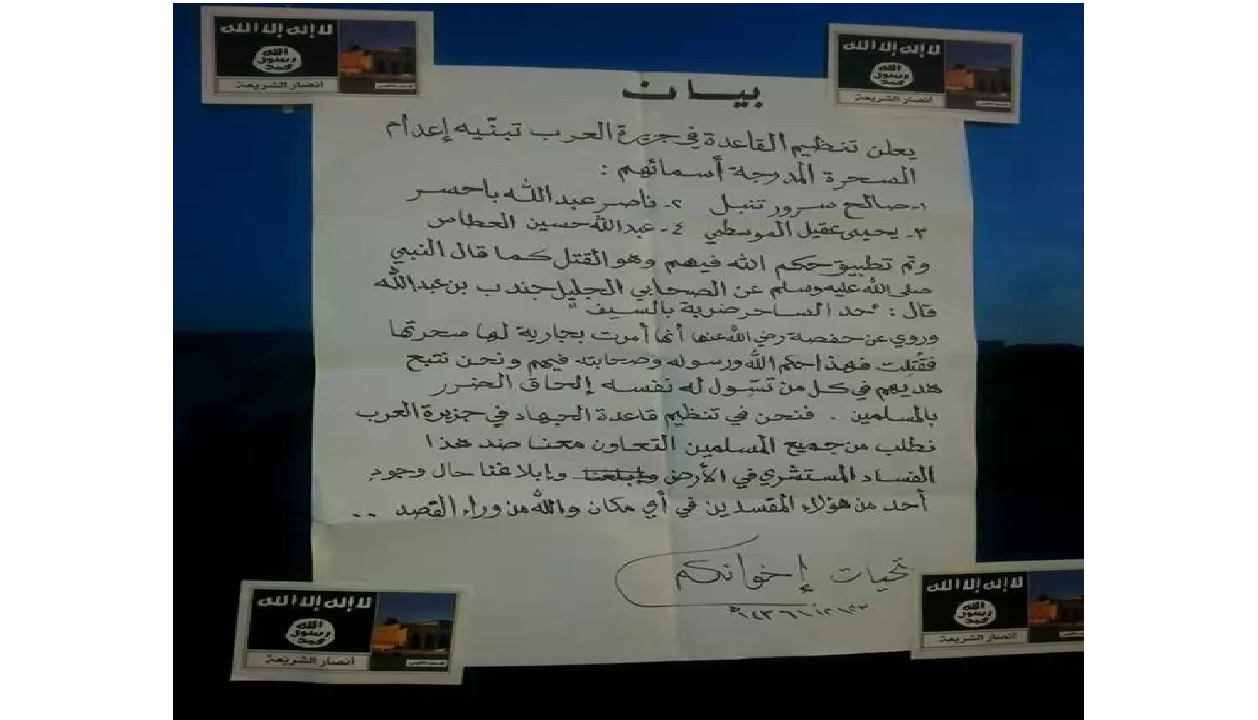 لا إله إلا الله
الله
رسول
محمد
أنصار الشريعة
لا إله إلا الله
الله
رسول
محمد
أنصار الشريعة
بيان
يعلن تنظيم القاعدة في جزيرة العرب تبنّيه إعدام
السحرة المدرجة أسمائهم :
١- صالح سرور تنبل ٢- ناصر عبدالله باحسر
٣- يحيى عقيل الموسطي ٤- عبدالله حسين العطاس
وتم تطبيق حكم الله فيهم وهو القتل كما قال النبي
صلى الله عليه وسلم عن الصحابي الجليل جندب بن عبدالله
قال : "حد الساحر ضربة بالسيف"
وروي عن حفصة رضي الله عنها أنها أمرت بجارية لها سحرتها
فقُتِلت فهذا حكم الله ورسوله وصحابته فيهم ونحن نتبع
هديهم في كل من تسّول له نفسه إلحاق الضرر
بالمسلمين . فنحن في تنظيم قاعدة الجهاد في جزيرة العرب
نطلب من جميع المسلمين التعاون معنا ضد هذا
الفساد المستشري في الأرض وإبلاغنا حال وجود
أحد من هؤلاء المفسدين في أي مكان والله من وراء القصد ..
تحيات إخوانكم
لا إله إلا الله
الله
رسول
محمد
أنصار الشريعة
لا إله إلا الله
الله
رسول
محمد
أنصار الشريعة